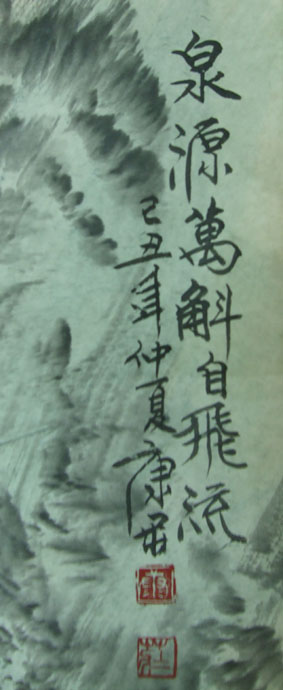 泉源萬斛自飛流
己丑年仲夏康君